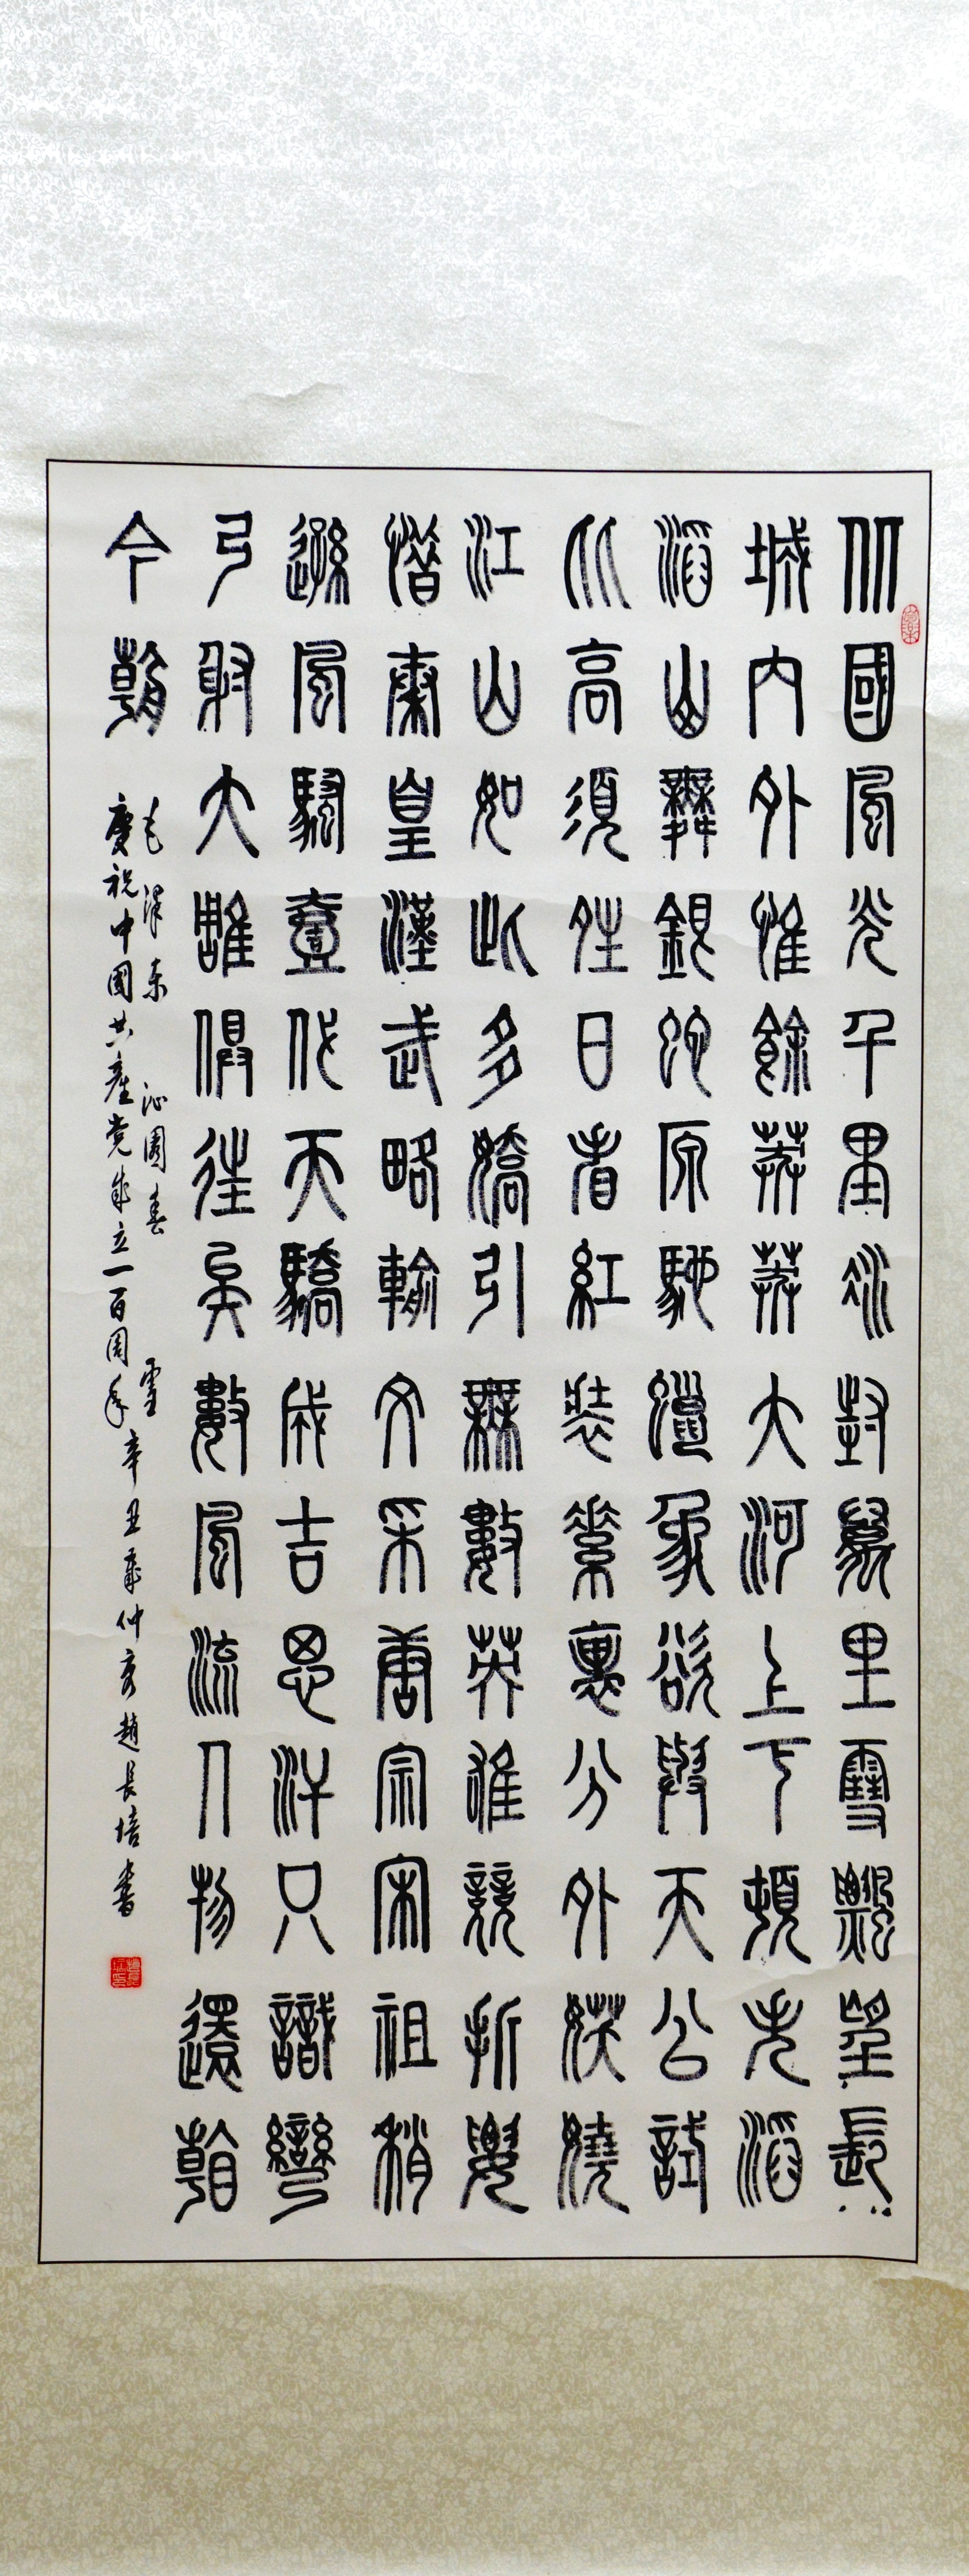 北國風光千里冰封萬里雪飄望長
城內外惟餘莽莽大河上下頓失滔
滔山舞銀蛇原馳蠟象欲與天公試
比高須晴日看紅裝素裹分外妖嬈
江山如此多嬌引無數英雄競折腰
惜秦皇漢武略輸文采唐宗宋祖稍
遜風騷壹代天驕成吉思汗只識彎
弓射大雕俱往矣數風流人物還朝
今朝
毛澤东 沁園春 雪
慶祝中国共產党成立一百周年
辛丑年仲夏趙長培書